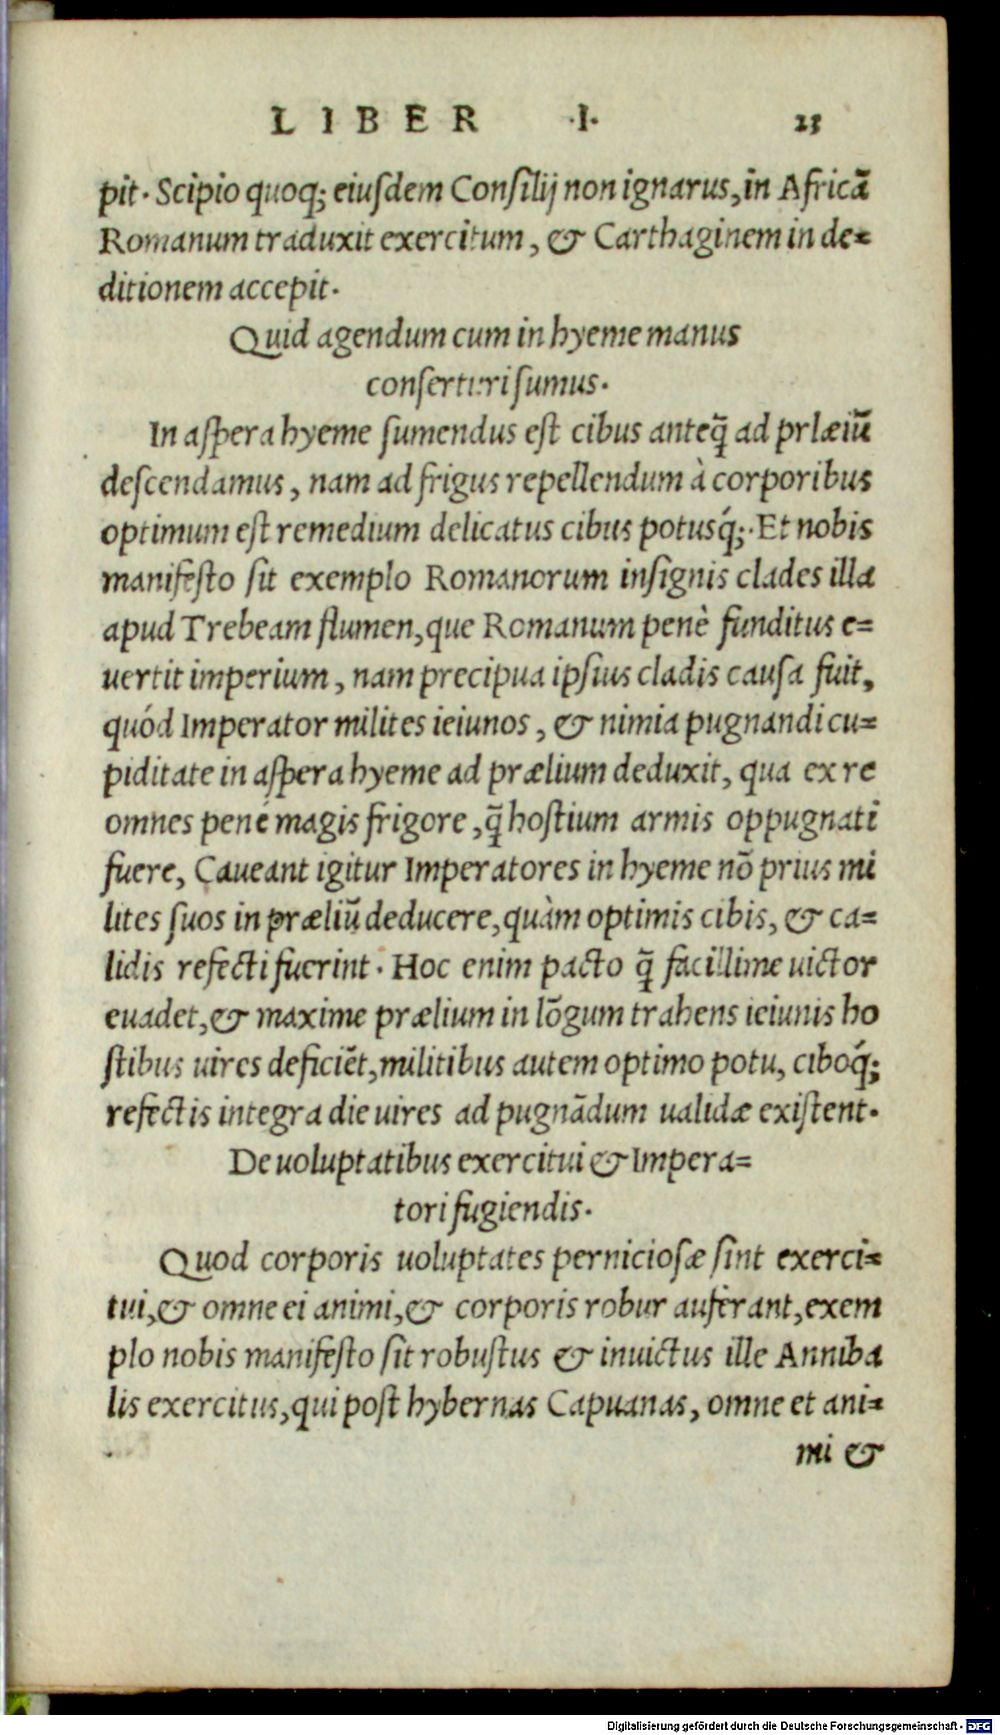 LIBER ·I· 25
pit. Scipio quoq; eiuſdem Conſilij non ignarus, in Africã
Romanum traduxit exercitum, & Carthaginem in de=
ditionem accepit.
Quid agendum cum in hyeme manus
conſerturi ſumus.
In aſpera hyeme ſumendus eſt cibus anteq̃ ad prlæiũ
deſcendamus, nam ad frigus repellendum à corporibus
optimum eſt remedium delicatus cibus potusq́;. Et nobis
manifeſto ſit exemplo Romanorum inſignis clades illa
apud Trebeam flumen, que Romanum penè funditus e=
uertit imperium, nam precipua ipſius cladis cauſa fuit,
quód Imperator milites ieiunos, & nimia pugnandi cu=
piditate in aſpera hyeme ad prælium deduxit, qua ex re
omnes pené magis frigore, q̃ hoſtium armis oppugnati
fuere, Caueant igitur Imperatores in hyeme nõ prius mi
lites ſuos in præliũ deducere, quàm optimis cibis, & ca=
lidis refecti fuerint. Hoc enim pacto q̃ facillime uictor
euadet, & maxime prælium in lõgum trahens ieiunis ho
ſtibus uires deficiẽt, militibus autem optimo potu, ciboq́;
refectis integra die uires ad pugnãdum ualidæ exiſtent.
De uoluptatibus exercitui & Impera=
tori fugiendis.
Quod corporis uoluptates pernicioſæ ſint exerci=
tui, & omne ei animi, & corporis robur auferant, exem
plo nobis manifeſto ſit robuſtus & inuictus ille Anniba
lis exercitus, qui poſt hybernas Capuanas, omne et ani=
mi &
Digitalisierung gefördert durch die Deutsche Forschungsgemeinschaft - DFG